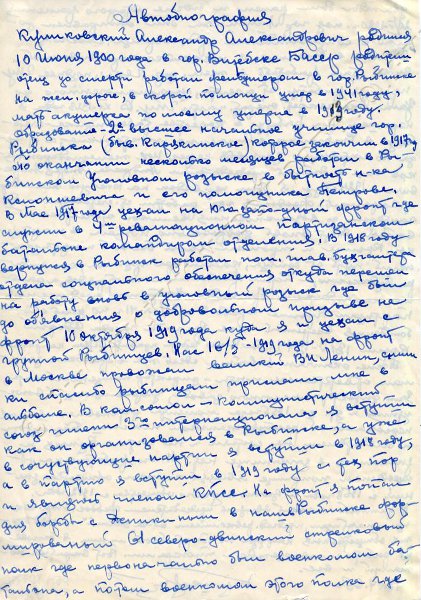 Автобиография
Кушковский Александр Александрович родился
10 июня 1900 года в гор. Витебске БССР родители
отец до смерти работал фельдшером в гор. Рыбинске
на жел. дороге, в скорой помощи умер в 1941 году,
мать акушерка по моему умерла в 1913 году.
Образование - 2ое высшее начальное училище гор.
Рыбинска (быв. Карякинское) которое закончил в 1917 г.
По окончании несколько месяцев работал в Ры-
бинском Уголовном розыске в бытность н-ка
и его помощника
В Мае 1917 года уехал на Юго Западный фронт где
служил в 4м революционном партизанском
батальоне командиром отделения. В 1918 году
вернулся в Рыбинск работал пом. глав. бухгалтера
отдела социального обеспечения откуда перешел
на работу вновь в уголовный розыск где был
до объявления о добровольном призыве на
фронт 10 октября 1919 года куда я и уехал с
группой Рыбинцев. Нас 16/X 1919 года на фронт
в Москве провожал великий В.И. Ленин, сним
ки спасибо рыбинцам прислали мне в
альбоме. В комсомол - коммунистический
союз имени 3го интернационала я вступил
как он организовался в Рыбинске, а уже
в сочувствующие партии я вступил в 1918 году,
а в партию я вступил в 1919 году с тех пор
и являюсь членом КПСС. На фронт я попал
для борьбы с Деникиным в наш Рыбинске фор-
мированный 61 северо-двинский стрелковый
полк где первоначально был военкомом ба-
тальона, а потом военкомом этого полка где